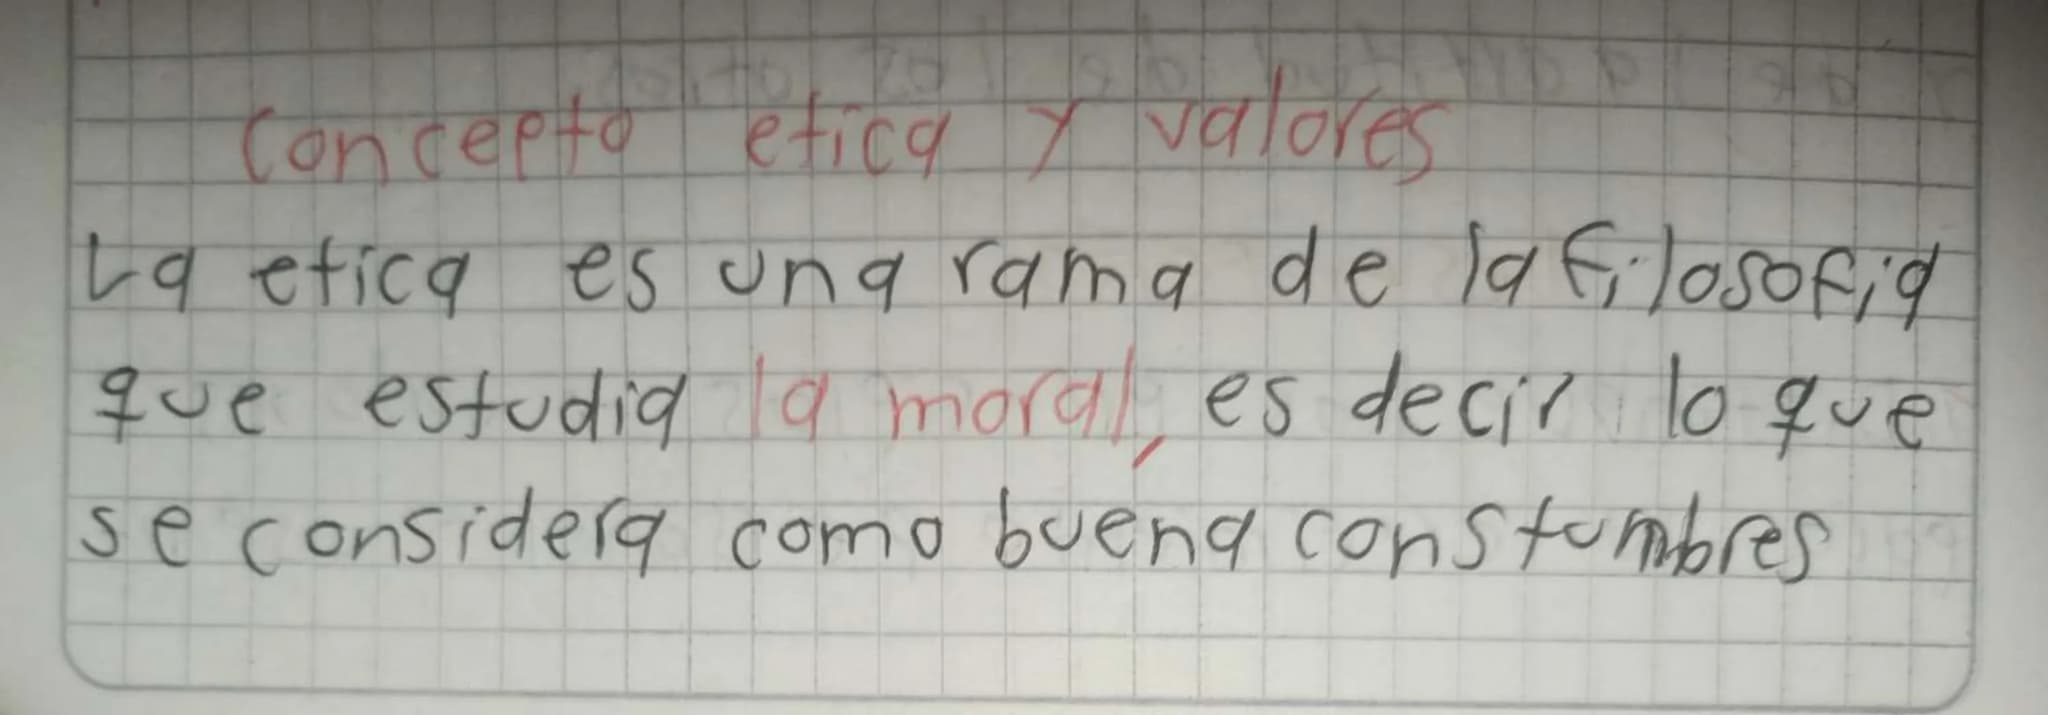 Concepto etica y valores
La etica es una rama de la filosofia
que estudia la moral, es decir lo que
se considera como buena constumbres